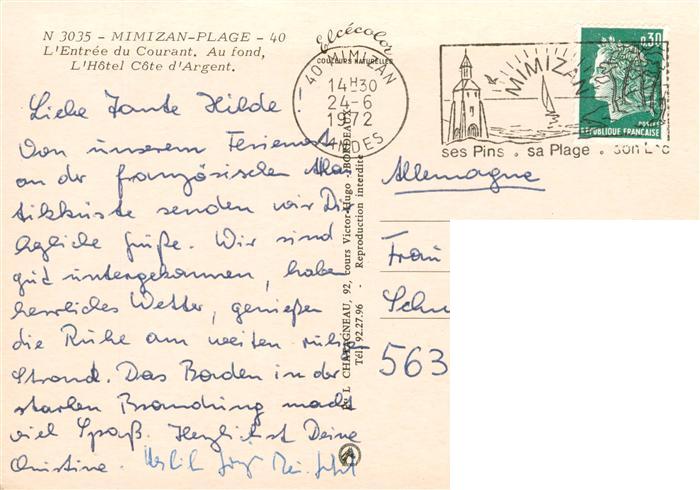 N 3035 - MIMIZAN-PLAGE - 40
L'Entrée du Courant. Au fond,
L'Hôtel Côte d'Argent.
Elcécolor
COULEURS NATURELLES
40 MIMIZAN
14H30
24-6
1972
LANDES
MIMIZAN
ses Pins . sa Plage . son L
0,30
POSTES
REPUBLIQUE FRANÇAISE
Liebe Tante Hilde
Von unserem Ferienort
an der französischen Atlan
tikküste senden wir Dir
herzliche Grüße. Wir sind
gut untergekommen, haben
herrliches Wetter, genießen
die Ruhe am weiten ruhigen
Strand. Das Baden in der
starken Brandung macht
viel Spaß. Herzlichst Deine
Christine.
L CHATAGNEAU, 92, cours Victor-Hugo - BORDEAUX
Tél. 92.27.96 - Reproduction interdite
Allemagne
Frau
Schu
563